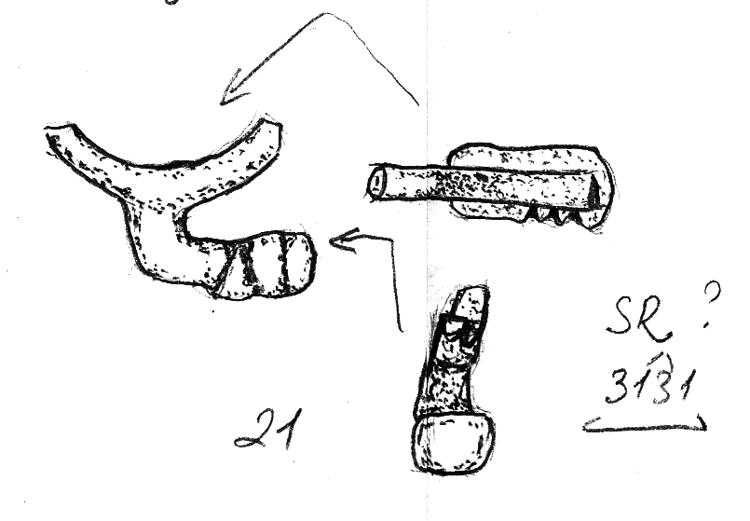 SR ?
3131
21